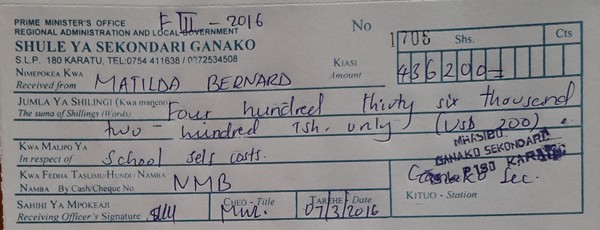 PRIME MINISTER'S OFFICE F III - 2016
REGIONAL ADMINISTRATION AND LOCAL GOVERNMENT No 1706 Shs. Cts
SHULE YA SEKONDARI GANAKO
S.L.P. 180 KARATU, TEL:0754 411638 / 0272534508 KIASI
Amount 436200=
NIMEPOKEA KWA
Received from MATILDA BERNARD
JUMLA YA SHILINGI (Kwa maneno)
The suma of Shillings (Words) Four hundred thirty six thousand
two - hundred Tsh. only (USD 200)
KWA MALIPO YA
In respect of School costs.
MHASIBU
GANAKO SEKONDARI
180 KARATU
KWA FEDHA TASLIMU/HUNDI/ NAMBA
NAMBA By Cash/Cheque No. NMB
Ganako Sec.
KITUO - Station
SAHIHI YA MPOKEAJI
Receiving Officer's Signature
CHEO - Title Mwl.
TAREHE - Date 07/3/2016